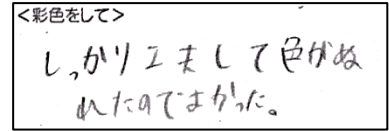 <彩色をして>
しっかり工夫して色がぬ
れたのでよかった。